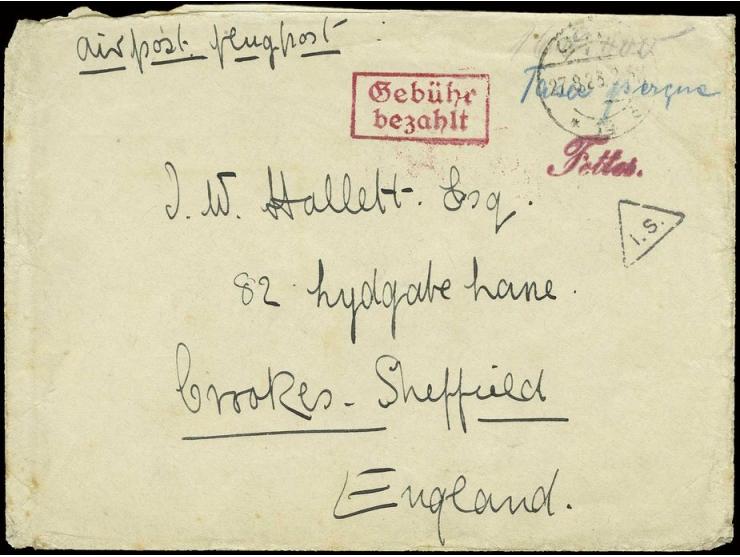 airpost. flugpost
Gebühr
bezahlt
27.8.23
Taxe perçue
I.S.
J. W. Hallett. Esq.
82 Lydgate Lane.
Crookes - Sheffield
England.